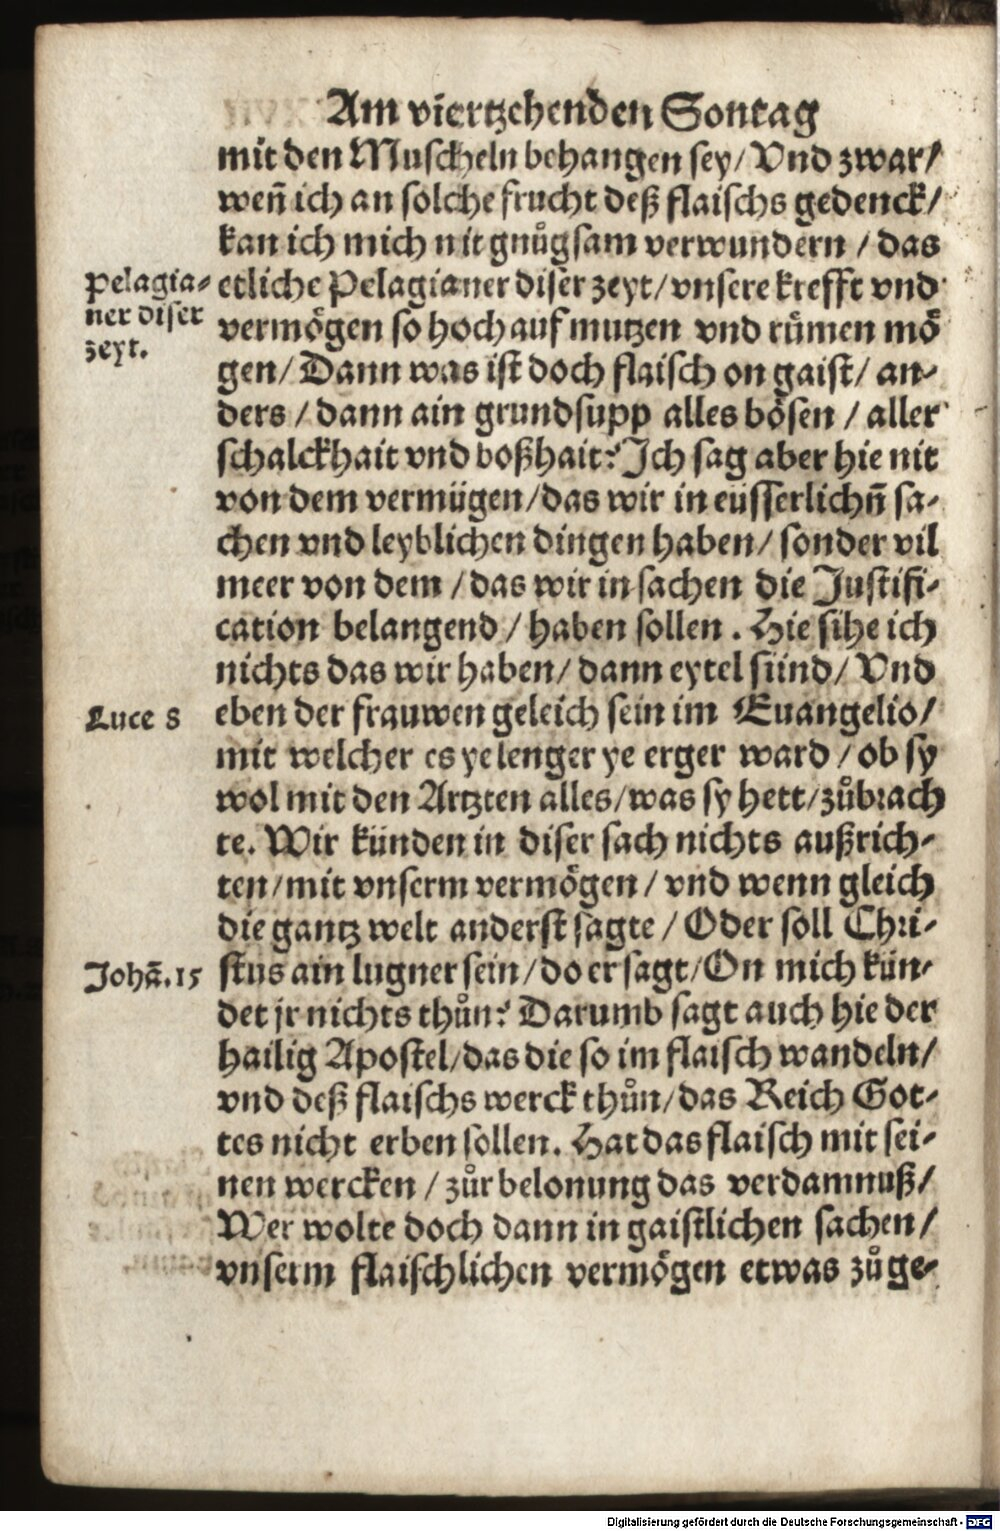 Am viertzehenden Sontag
mit den Muscheln behangen sey/ Vnd zwar/
weñ ich an solche frucht deß flaischs gedenck/
kan ich mich nit gnůgsam verwundern / das
Pelagia-
ner diser
zeyt.
etliche Pelagianer diser zeyt/ vnsere krefft vnd
vermögen so hoch auf mutzen vnd rümen mö
gen/ Dann was ist doch flaisch on gaist/ an-
ders / dann ain grundsupp alles bösen / aller
schalckhait vnd boßhait? Ich sag aber hie nit
von dem vermügen/ das wir in eüsserlichñ sa-
chen vnd leyblichen dingen haben/ sonder vil
meer von dem / das wir in sachen die Justifi-
cation belangend / haben sollen. Hie sihe ich
nichts das wir haben/ dann eytel sünd/ Vnd
Luce 8
eben der frauwen geleich sein im Euangelio/
mit welcher es ye lenger ye erger ward / ob sy
wol mit den Artzten alles/ was sy hett/ zůbrach
te. Wir künden in diser sach nichts außrich-
ten/ mit vnserm vermögen / vnd wenn gleich
die gantz welt anderst sagte / Oder soll Chri-
Johā. 15
stus ain lugner sein/ do er sagt/ On mich kün-
det jr nichts thůn? Darumb sagt auch hie der
hailig Apostel/ das die so im flaisch wandeln/
vnd deß flaischs werck thůn/ das Reich Got-
tes nicht erben sollen. Hat das flaisch mit sei-
nen wercken / zůr belonung das verdamnuß/
Wer wolte doch dann in gaistlichen sachen/
vnserm flaischlichen vermögen etwas zů ge-
Digitalisierung gefördert durch die Deutsche Forschungsgemeinschaft - DFG